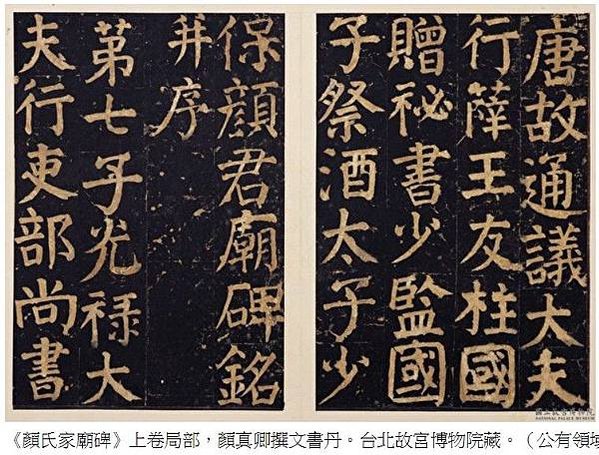 唐故通議大夫
行薛王友柱國
贈祕書少監國
子祭酒太子少
保顏君廟碑銘
并序
苐七子光禄大
夫行吏部尚書
國立故宮博物院
NATIONAL PALACE MUSEUM
《顏氏家廟碑》上卷局部，顏真卿撰文書丹。台北故宮博物院藏。（公有領域